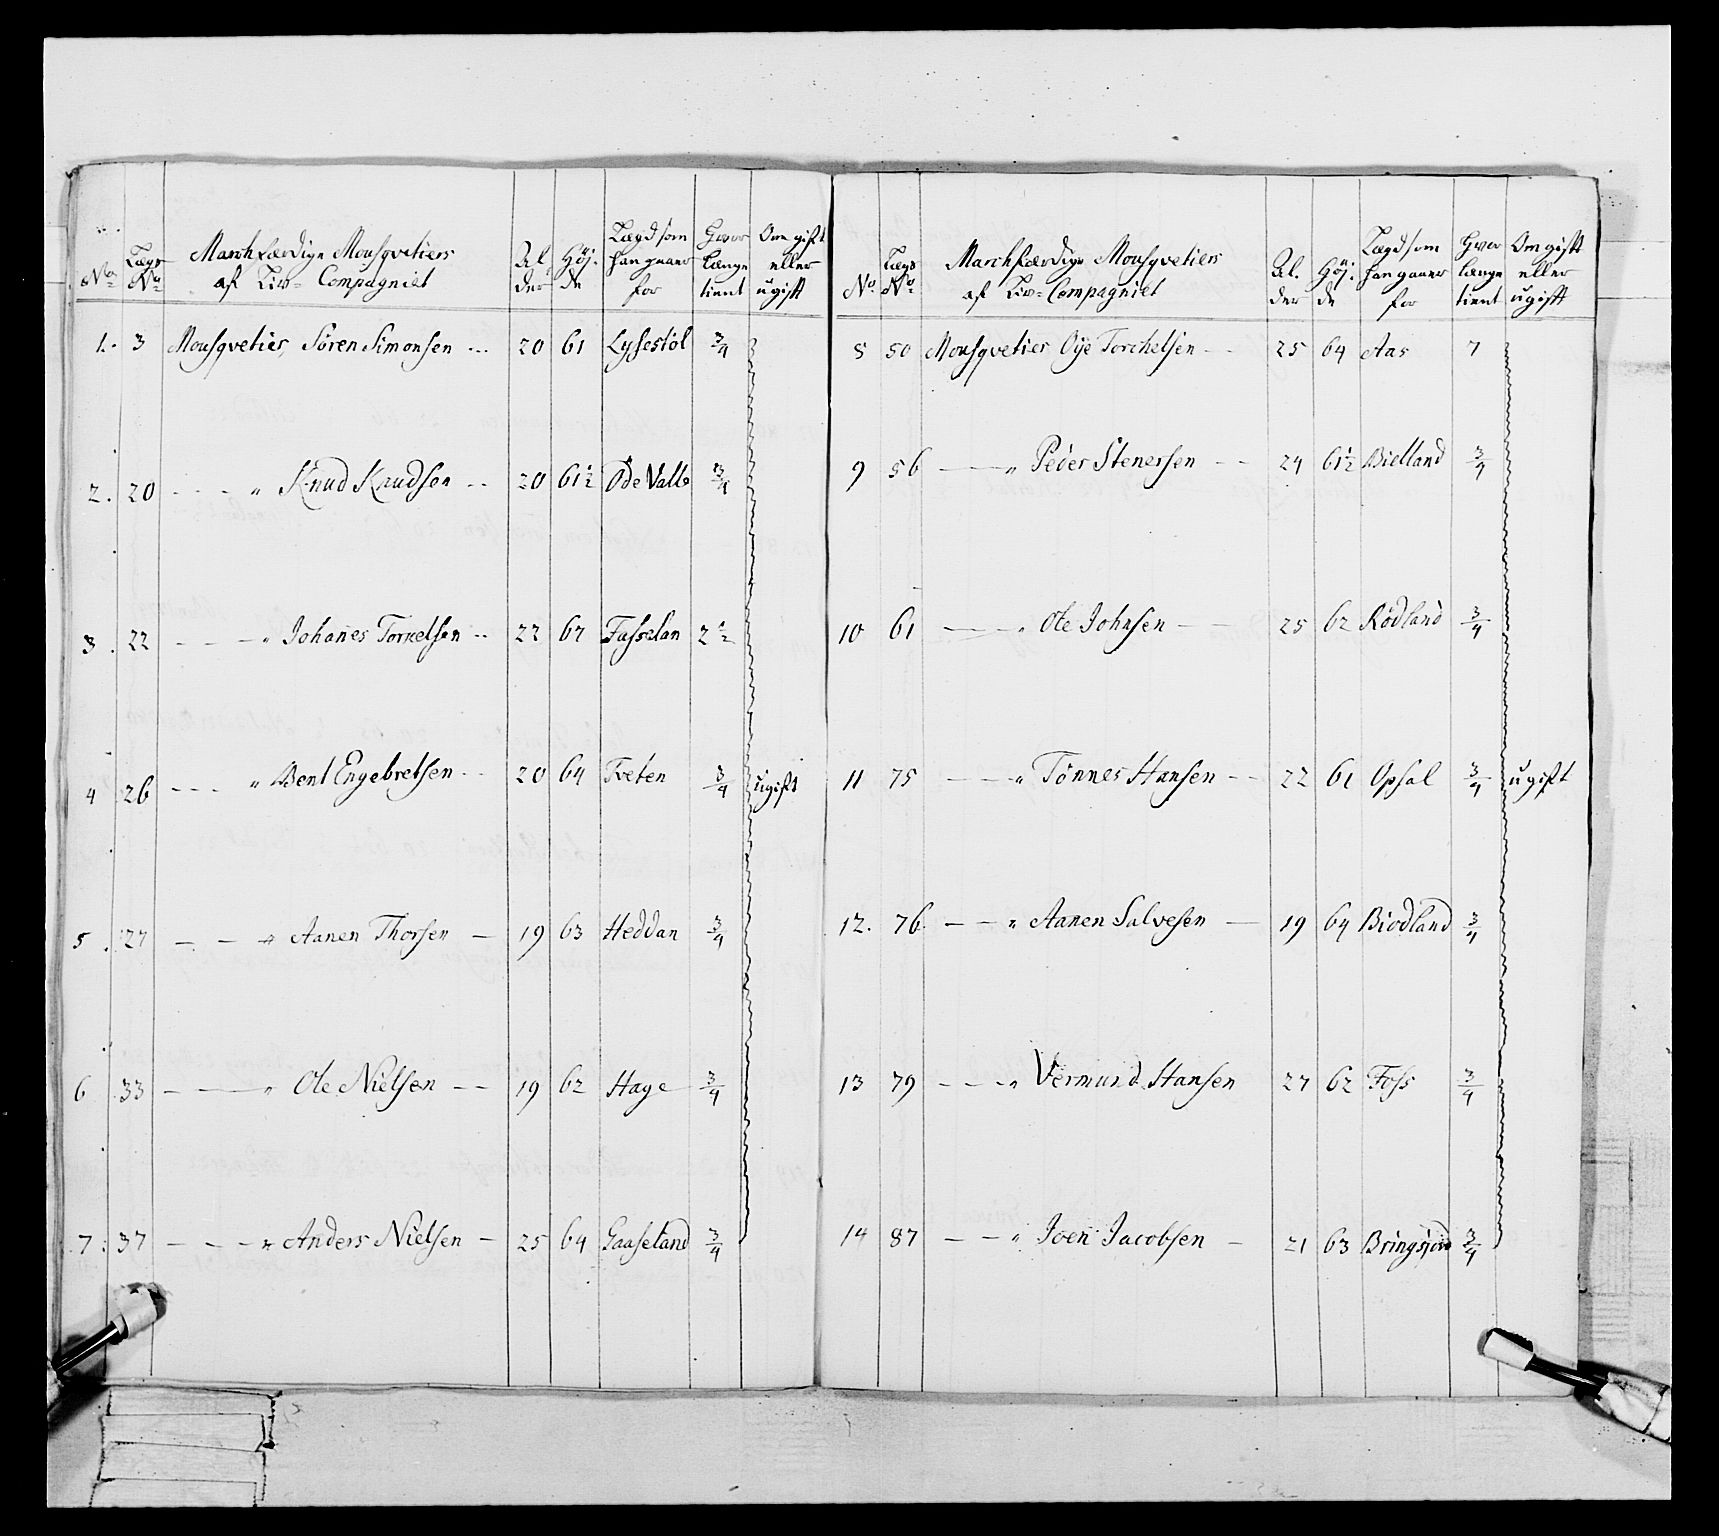 No. Lægs No. Marchfærdige Mousqvetiers af Liv- Compagniet Al. der Höj. de Lægd som han gaaer for Hvor længe tient Om gift eller ugift
1. 3 Mousqvetier, Sören Simonsen 20 61 Lyssestöl 3/4
2. 20 — — „ Knud Knudson 20 61½ Öde Valle 3/4
3. 22 — — „ Johanes Tornelsen 22 62 Fasselan 2½
4 26 — — „ Bent Engebretsen 20 64 Tveten 3/4 ugift
5. 27 — — „ Aanen Thorsen 19 63 Heddan 3/4
6 33 — — „ Ole Nielsen 19 62 Hage 3/4
7. 37 — — „ Anders Nielsen 25 64 Gaaseland 3/4
No. Lægs No. Marchfærdige Mousqvetiers af Liv- Compagniet Al. der Höj. de Lægd som han gaaer for Hvor længe tient Om gift eller ugift
8 50 Mousqvetier Oÿe Torchelsen 25 64 Aas 7
9 56 — — „ Peder Stenersen 24 61½ Bielland 3/4
10 61 — — „ Ole Johnsen 25 62 Rödland 3/4
11 75 — — „ Tönnes Hansen 22 61 Opsal 3/4 ugift
12. 76 — — „ Aanen Salvesen 19 64 Biodland 3/4
13 79 — — „ Vermund Hansen 27 62 Foss 3/4
14 87 — — „ Joen Jacobsen 21 63 3/4